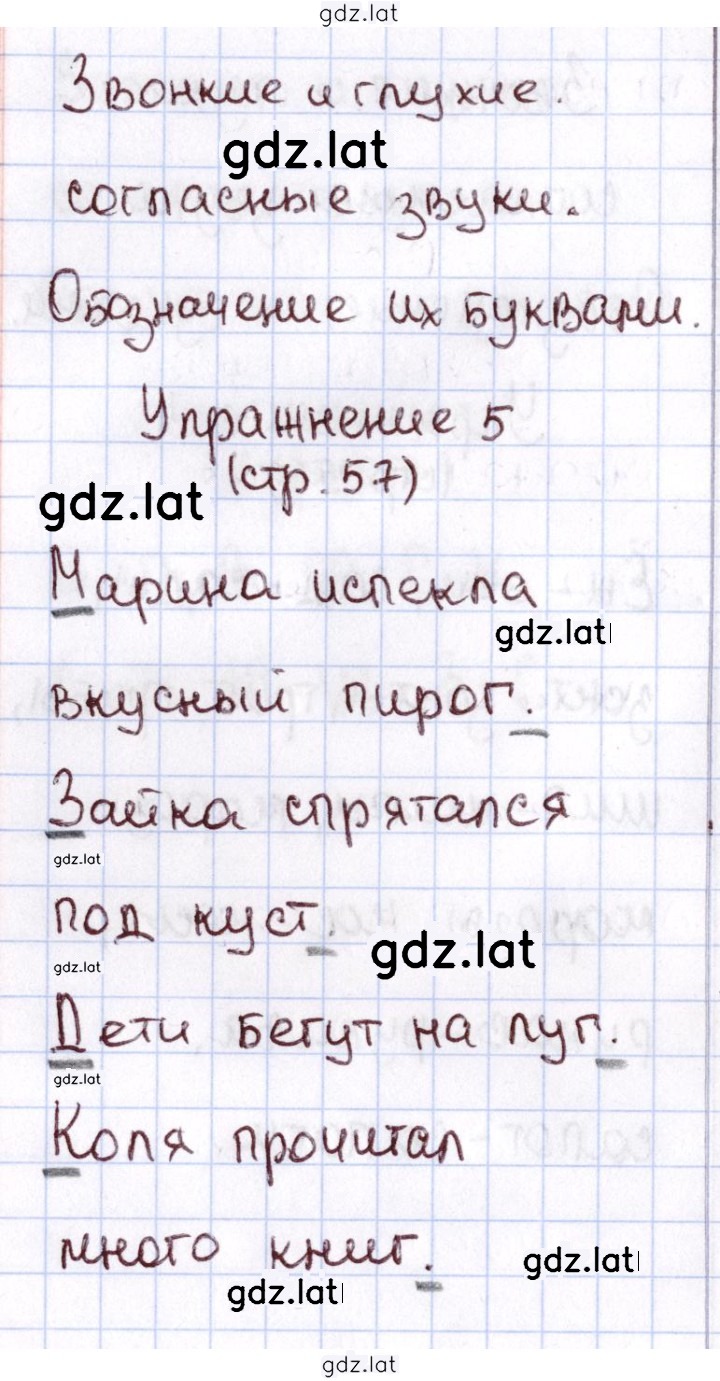 gdz.lat
Звонкие и глухие.
gdz.lat
согласные звуки.
Обозначение их буквами.
Упражнение 5
(стр. 57)
gdz.lat
Марина испекла
gdz.lat
вкусный пирог.
Зайка спрятался
gdz.lat
под куст.
gdz.lat
gdz.lat
Дети бегут на луг.
gdz.lat
Коля прочитал
много книг.
gdz.lat
gdz.lat
gdz.lat